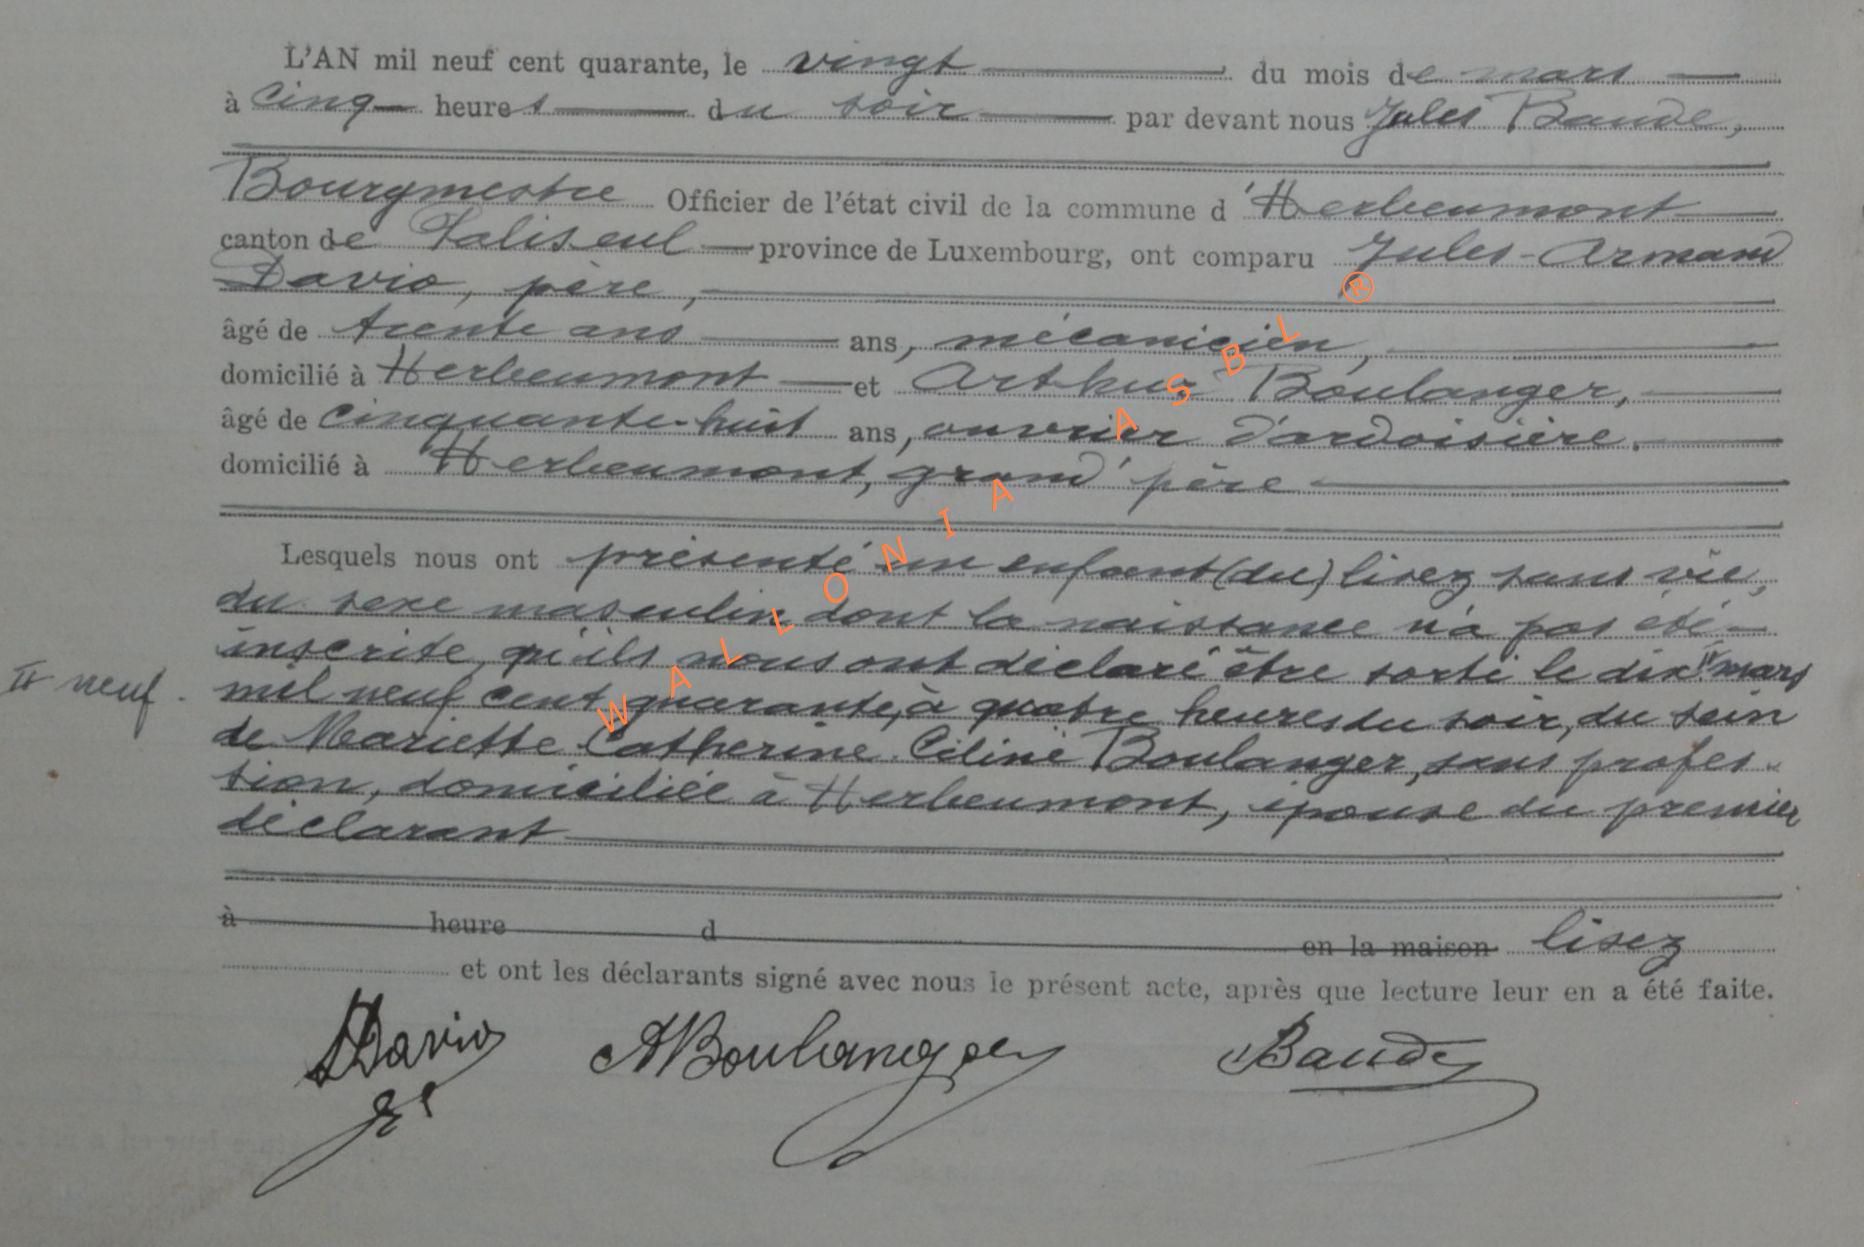 L'AN mil neuf cent quarante, le vingt du mois de mars
à cinq heures du soir par devant nous Jules Baude,
Bourgmestre Officier de l'état civil de la commune d'Herbeumont
canton de Paliseul province de Luxembourg, ont comparu Jules-Armand
Davio, père,
âgé de trente ans ans, mécanicien,
domicilié à Herbeumont et Arthur Boulanger,
âgé de cinquante-huit ans, ouvrier d'ardoisière,
domicilié à Herbeumont, grand'père
Lesquels nous ont présenté un enfant (du) lisez sans vie,
du sexe masculin dont la naissance n'a pas été
inscrite, qu'ils nous ont déclaré être sorti le dix # mars
# neuf.
mil neuf cent quarante, à quatre heures du soir, du sein
de Mariette Catherine Céline Boulanger, sans profes-
sion, domiciliée à Herbeumont, épouse du premier
déclarant
à heure d en la maison lisez
et ont les déclarants signé avec nous le présent acte, après que lecture leur en a été faite.
Davio ABoulanger Baude
WALLONIA ASBL ®